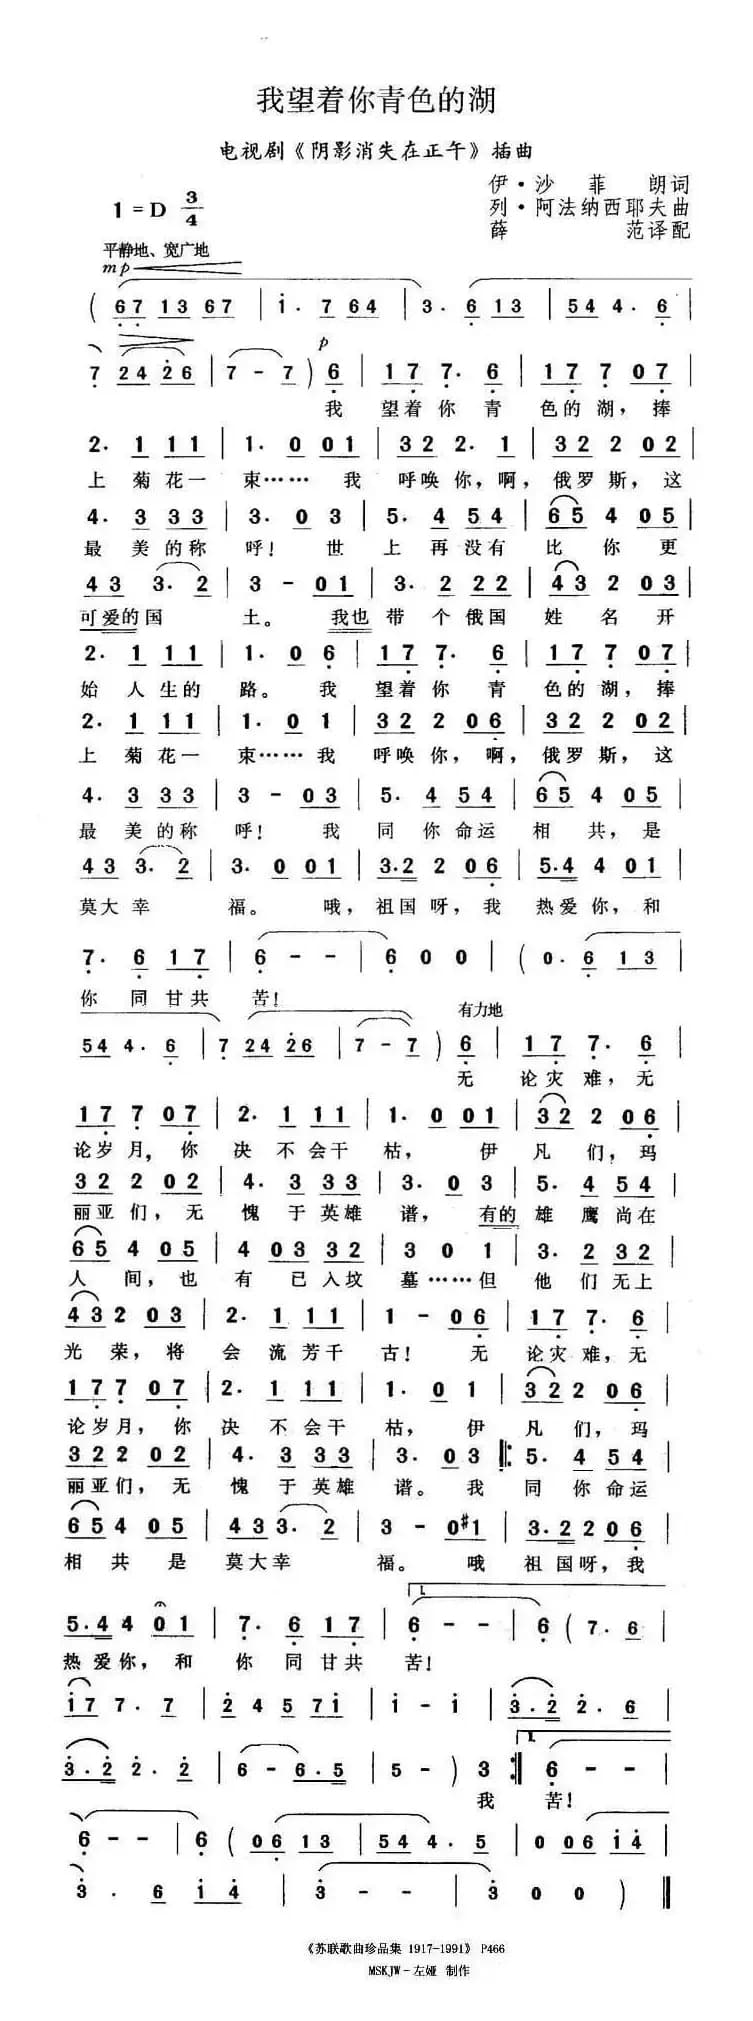 我望着你青色的湖
电视剧《阴影消失在正午》插曲
伊·沙菲朗词
1=D 3/4
列·阿法纳西耶夫曲
薛范译配
平静地、宽广地
mp
( 67 13 67 | i· 7 64 | 3· 6 13 | 54 4· 6 |
p
7 24 26 | 7 - 7 ) 6 | 17 7· 6 | 17 7 07 |
我 望着你青 色的湖，捧
2· 1 11 | 1· 0 01 | 32 2· 1 | 32 2 02 |
上菊花一 束…… 我 呼唤你，啊，俄罗斯，这
4· 3 33 | 3· 0 3 | 5· 4 54 | 65 4 05 |
最美的称 呼！世 上再没有 比你更
43 3· 2 | 3 - 01 | 3· 2 22 | 43 2 03 |
可爱的国 土。我也 带个俄国 姓名开
2· 1 11 | 1· 0 6 | 17 7· 6 | 17 7 07 |
始人生的 路。我 望着你青 色的湖，捧
2· 1 11 | 1· 0 1 | 32 2 06 | 32 2 02 |
上菊花一 束……我 呼唤你，啊，俄罗斯，这
4· 3 33 | 3 - 03 | 5· 4 54 | 65 4 05 |
最美的称 呼！我 同你命运 相共，是
43 3· 2 | 3· 0 01 | 3·2 2 06 | 5·4 4 01 |
莫大幸 福。哦，祖国呀，我 热爱你，和
7· 6 17 | 6 - - | 6 0 0 | ( 0· 6 13 |
你同甘共 苦！
有力地
54 4· 6 | 7 24 26 | 7 - 7 ) 6 | 17 7· 6 |
无 论灾难，无
17 7 07 | 2· 1 11 | 1· 0 01 | 32 2 06 |
论岁月，你 决不会干 枯，伊 凡们，玛
32 2 02 | 4· 3 33 | 3· 0 3 | 5· 4 54 |
丽亚们，无 愧于英雄 谱，有的 雄鹰尚在
65 4 05 | 4 03 32 | 3 0 1 | 3· 2 32 |
人间，也 有已入坟 墓……但 他们无上
43 2 03 | 2· 1 11 | 1 - 06 | 17 7· 6 |
光荣，将 会流芳千 古！无 论灾难，无
17 7 07 | 2· 1 11 | 1· 0 1 | 32 2 06 |
论岁月，你 决不会干 枯，伊 凡们，玛
32 2 02 | 4· 3 33 | 3· 0 3 |: 5· 4 54 |
丽亚们，无 愧于英雄 谱。我 同你命运
65 4 05 | 43 3· 2 | 3 - 0#1 | 3·2 2 06 |
相共是 莫大幸 福。哦 祖国呀，我
1.
5·4 4 01 | 7· 6 17 | 6 - - | 6 ( 7· 6 |
热爱你，和 你同甘共 苦！
i7 7· 7 | 2 4 57i | i - i | 3·2 2· 6 |
1.
3·2 2· 2 | 6 - 6·5 | 5 - ) 3 :| 6 - - |
我 苦！
6 - - | 6 ( 06 13 | 54 4· 5 | 0 06 i4 |
3· 6 i4 | 3 - - | 3 0 0 ) ||
《苏联歌曲珍品集 1917-1991》 P466
MSKJW-左娅 制作